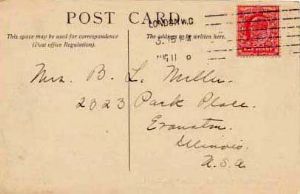 POST CARD
LONDON W.C
This space may be used for correspondence
(Post office Regulation).
The address to be written here.
3.15 PM
11
Mrs. B. L. Miller
2023 Park Place.
Evanston
Illinois
U.S.A